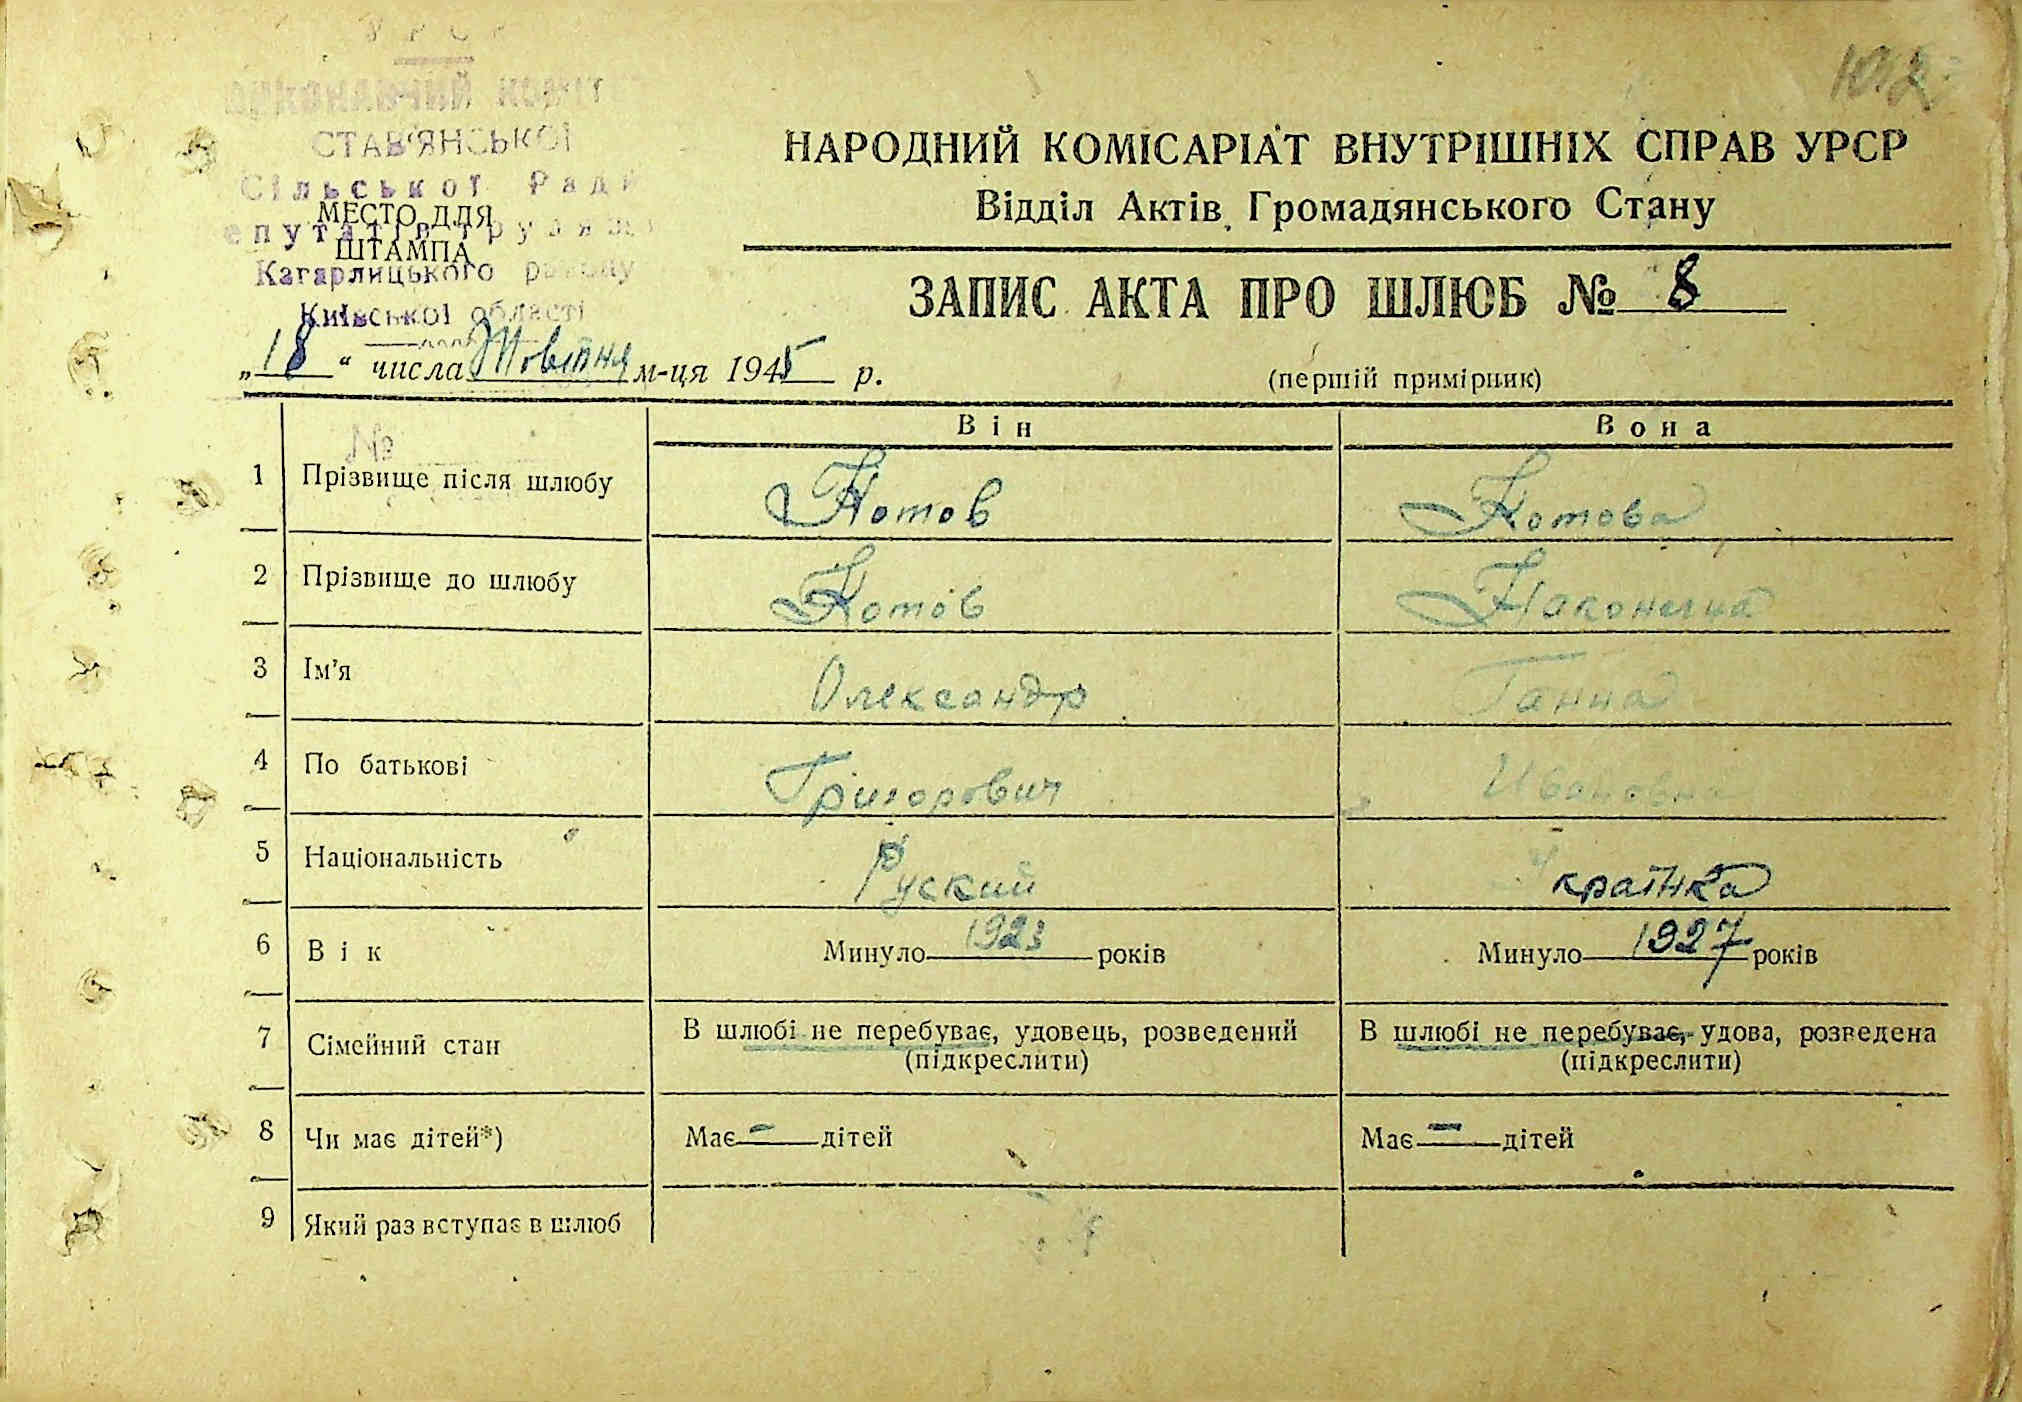 У Р С Р
ВИКОНАВЧИЙ КОМІТЕТ
СТАВ'ЯНСЬКОЇ
Сільської Ради
епутатів трудящ
Кагарлицького району
Київської області
МЕСТО ДЛЯ
ШТАМПА
НАРОДНИЙ КОМІСАРІАТ ВНУТРІШНІХ СПРАВ УРСР
Відділ Актів Громадянського Стану
ЗАПИС АКТА ПРО ШЛЮБ № 8
„18“ числа Жовтня м-ця 1945 р.
(перший примірник)
№
Він Вона
1 Прізвище після шлюбу Котов Котова
2 Прізвище до шлюбу Котов Наконечна
3 Ім'я Олександр Ганна
4 По батькові Григорович Ивановна
5 Національність Руский Українка
6 Вік Минуло 1923 років Минуло 1927 років
7 Сімейний стан В шлюбі не перебуває, удовець, розведений В шлюбі не перебуває, удова, розведена
(підкреслити) (підкреслити)
8 Чи має дітей*) Має — дітей Має — дітей
9 Який раз вступає в шлюб